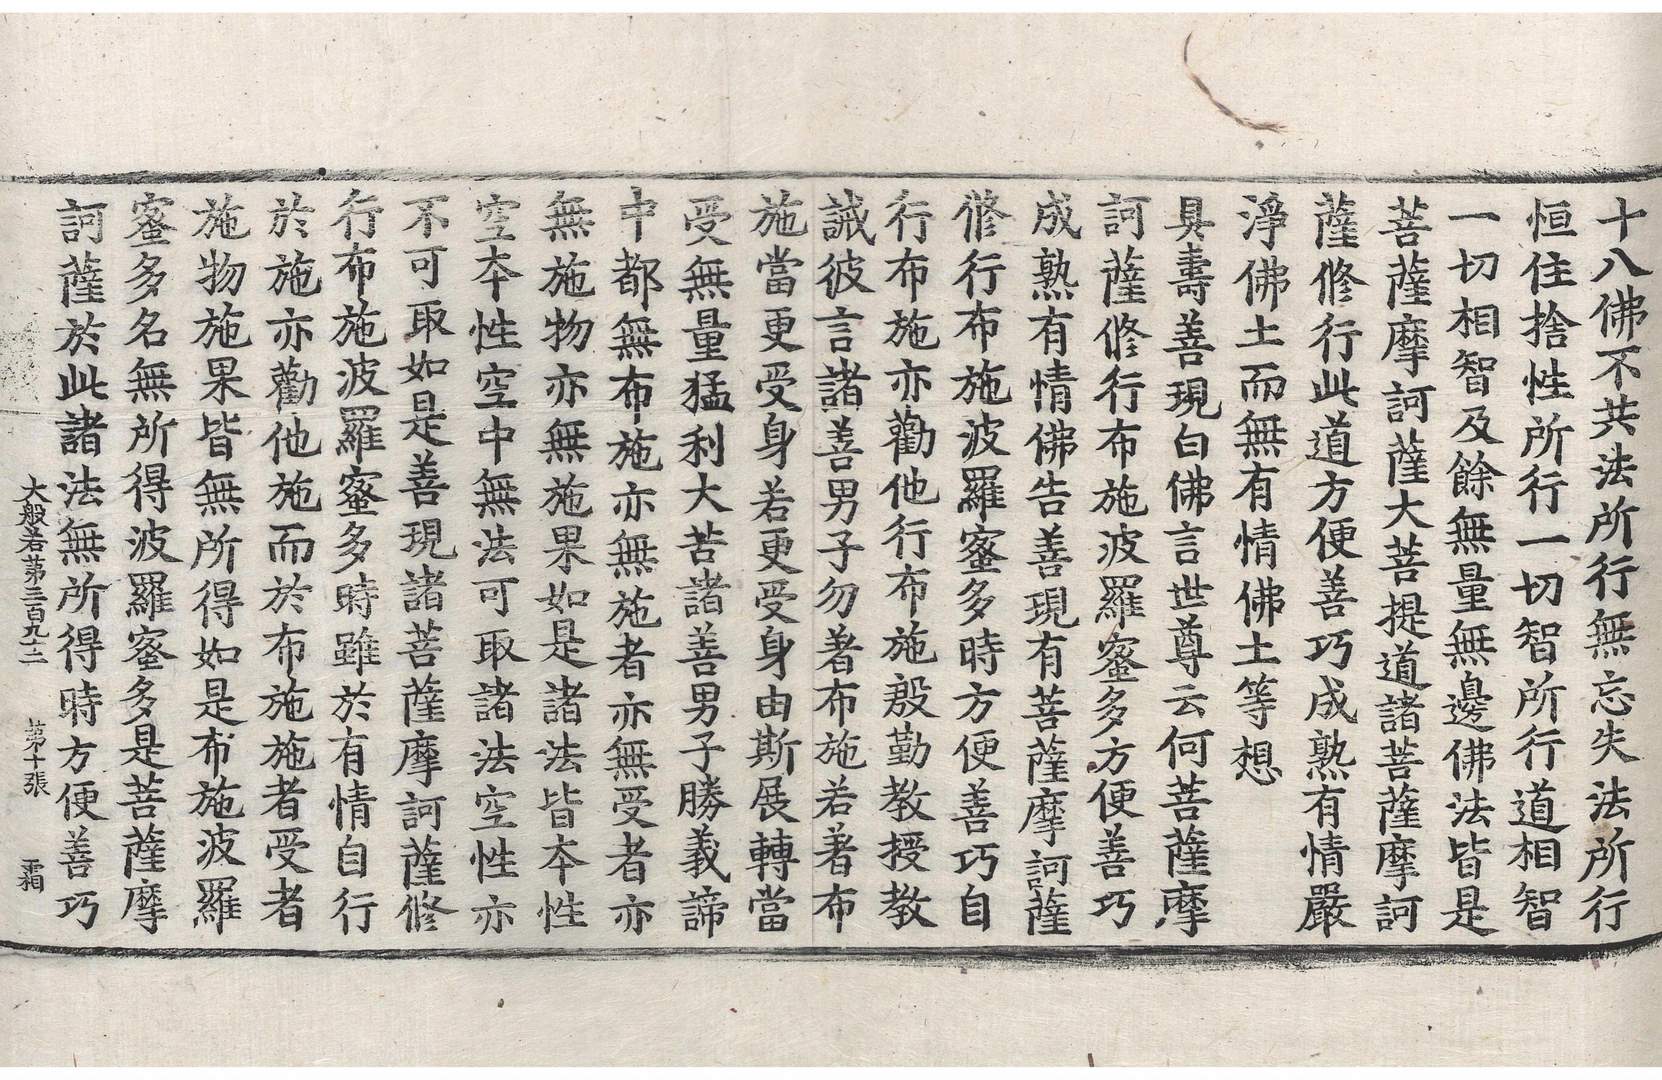 十八佛不共法所行無忘失法所行
恒住捨性所行一切智所行道相智
一切相智及餘無量無邊佛法皆是
菩薩摩訶薩大菩提道諸菩薩摩訶
薩修行此道方便善巧成熟有情嚴
淨佛土而無有情佛土等想
具壽善現白佛言世尊云何菩薩摩
訶薩修行布施波羅蜜多方便善巧
成熟有情佛告善現有菩薩摩訶薩
修行布施波羅蜜多時方便善巧自
行布施亦勸他行布施慇勤教授教
誡彼言諸善男子勿著布施若著布
施當更受身若更受身由斯展轉當
受無量猛利大苦諸善男子勝義諦
中都無布施亦無施者亦無受者亦
無施物亦無施果如是諸法皆本性
空本性空中無法可取諸法空性亦
不可取如是善現諸菩薩摩訶薩修
行布施波羅蜜多時雖於有情自行
於施亦勸他施而於布施施者受者
施物施果皆無所得如是布施波羅
蜜多名無所得波羅蜜多是菩薩摩
訶薩於此諸法無所得時方便善巧
大般若第三百九十二 第十張 霜